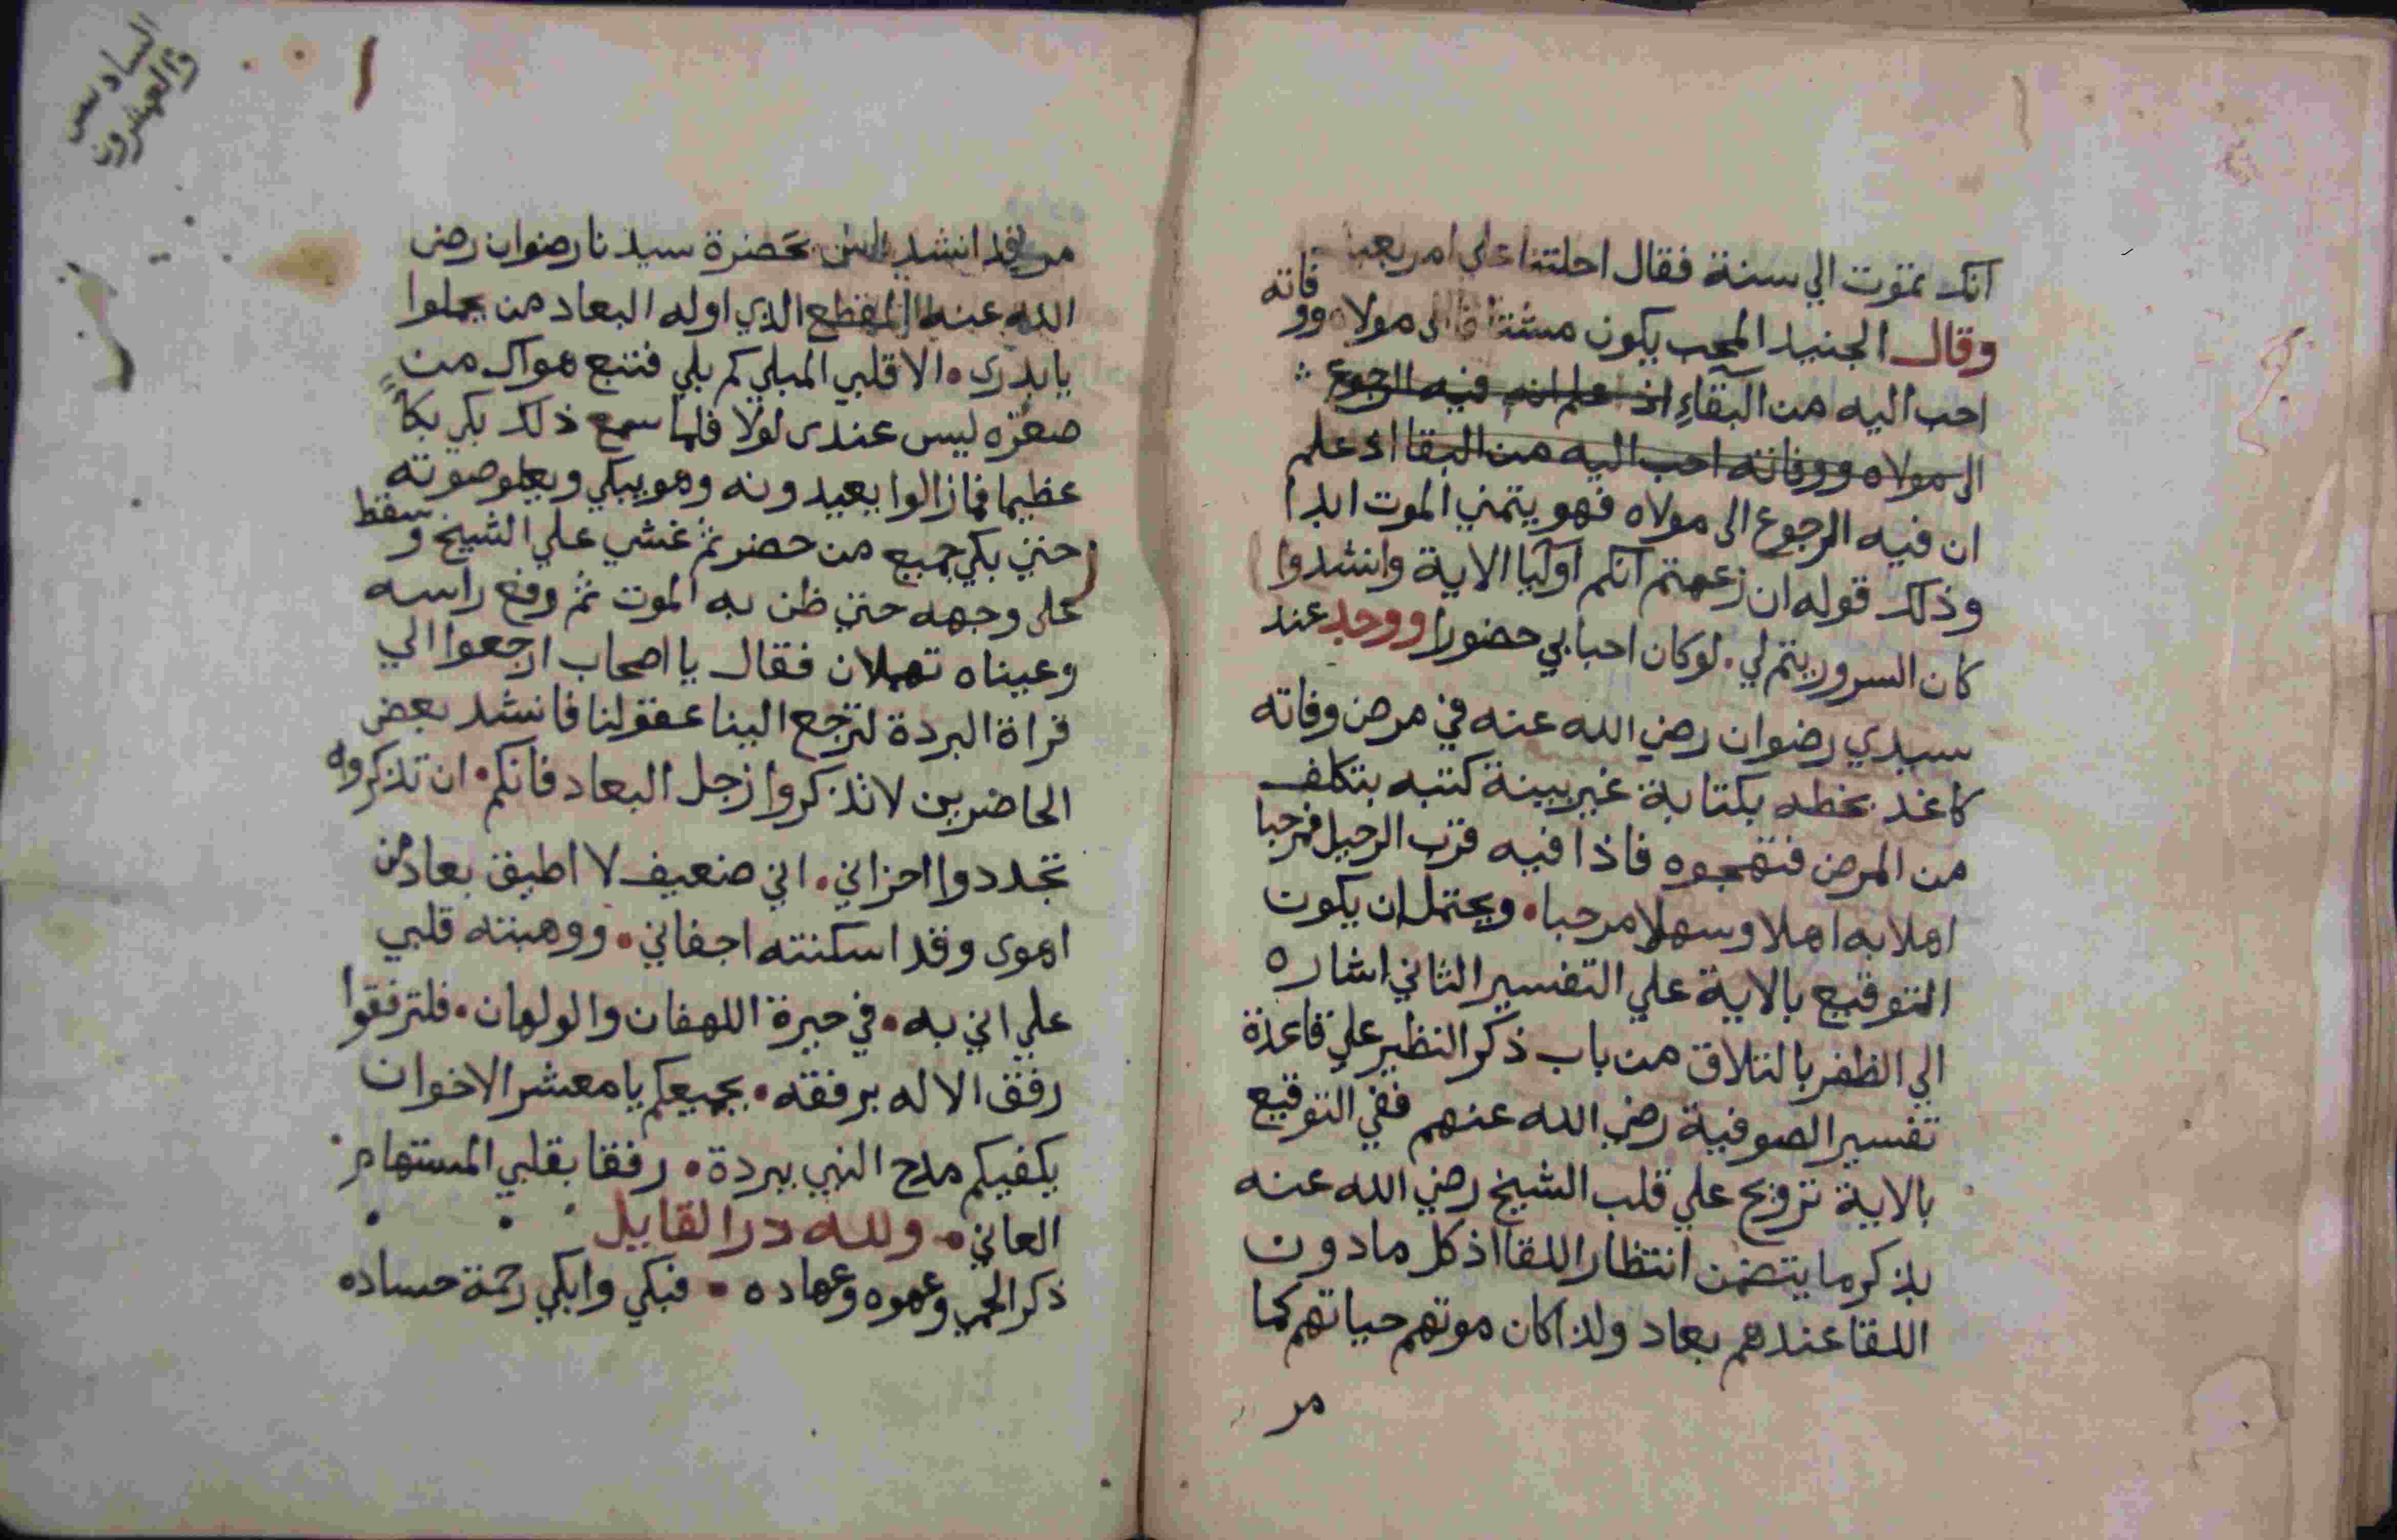 انك تموت الي سنة فقال احلتنا علي امر بعيد
وقال الجنيد المحب يكون مشتاقا الى مولاه ووفاته
احب اليه من البقاء اذ علم انه فيه الرجوع
الى مولاه ووفاته احب اليه من البقا اذ علم
ان فيه الرجوع الى مولاه فهو يتمني الموت ابدا
وذلك قوله ان زعمتم انكم اوليا الاية وانشدوا
كان السرور يتم لي • لو كان احبابي حضورا ووجد عند
سيدي رضوان رضي الله عنه في مرض وفاته
كاغد بخطه بكتابة غير بينة كتبه بتكلف
من المرض فتهجوه فاذا فيه قرب الرحيل فمرحبا
اهلا به اهلا وسهلا مرحبا • ويحتمل ان يكون
التوقيع بالاية علي التفسير الثاني اشاره
الي الظفر بالتلاق من باب ذكر النظير علي قاعدة
تفسير الصوفية رضي الله عنهم ففي التوقيع
بالاية ترويح علي قلب الشيخ رضي الله عنه
بذكر ما يتضمن انتظار اللقا اذ كل ما دون
اللقا عندهم بعاد ولذا كان موتهم حياتهم كما
مر
السادس
والعشرون
مر وقد انشد بحضرة سيدنا رضوان رضي
الله عنه المقطع الذي اوله البعاد من يحملوا
يا بدرى • الا قلبي المبلي كم بلي فتتبع هواك من
صغره ليس عندى لولا فلما سمع ذلك بكى بكاً
عظيما فما زالوا يعيدونه وهو يبكي ويعلو صوته
حتي بكي جميع من حضر ثم غشي علي الشيخ وسقط
على وجهه حتي ظن به الموت ثم رفع راسه
وعيناه تهملان فقال يا اصحاب ارجعوا الي
قراة البردة لترجع الينا عقولنا فانشد بعض
الحاضرين لا تذكروا زجل البعاد فانكم • ان تذكروه
تجددوا احزاني • اني ضعيف لا اطيق بعاد من
اهوى وقد اسكنته اجفاني • ووهبته قلبي
علي اني به • في حيرة اللهفان والولهان • فلترفقوا
رفق الاله برفقه • بجميعكم يا معشر الاخوان
يكفيكم مدح النبي ببردة • رفقا بقلبي المستهام
العاني • ولله در القايل
ذكر الحمي وعهوه وعهاده • فبكي وابكي رحمة حساده